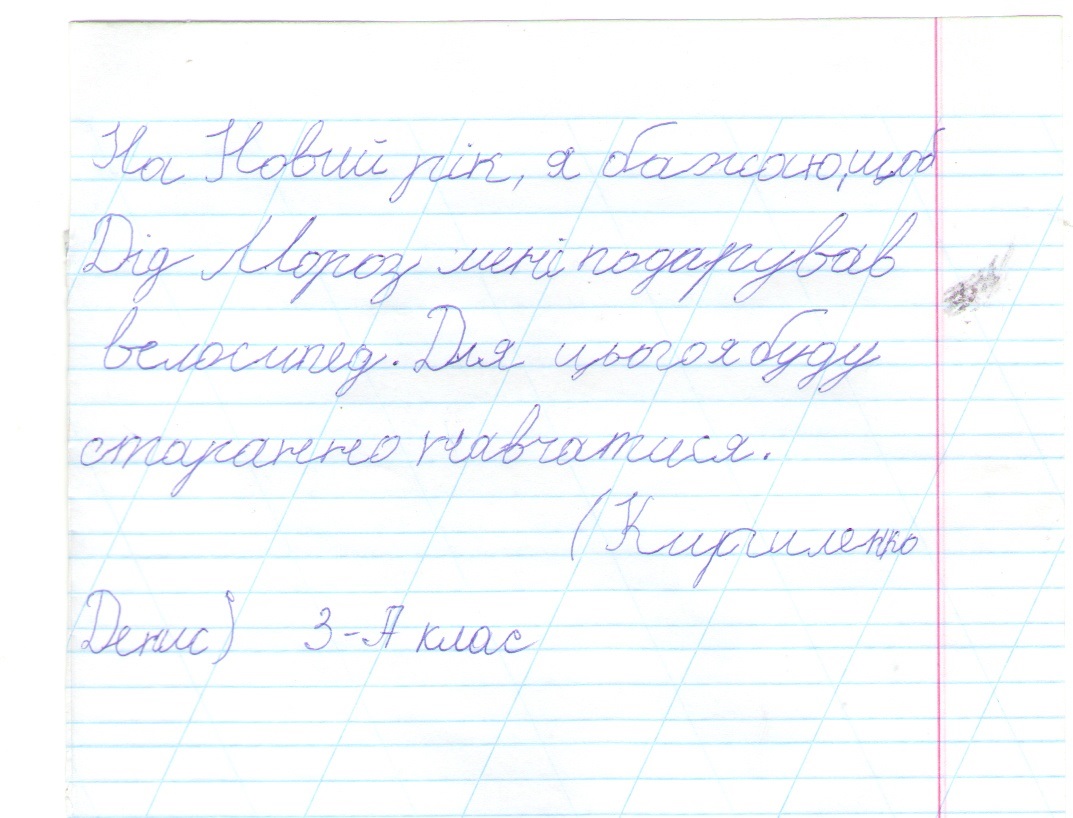 На Новий рік, я бажаю, щоб
Дід Мороз мені подарував
велосипед. Для цього я буду
старанно навчатися.
(Кириленко
Денис) 3-А клас